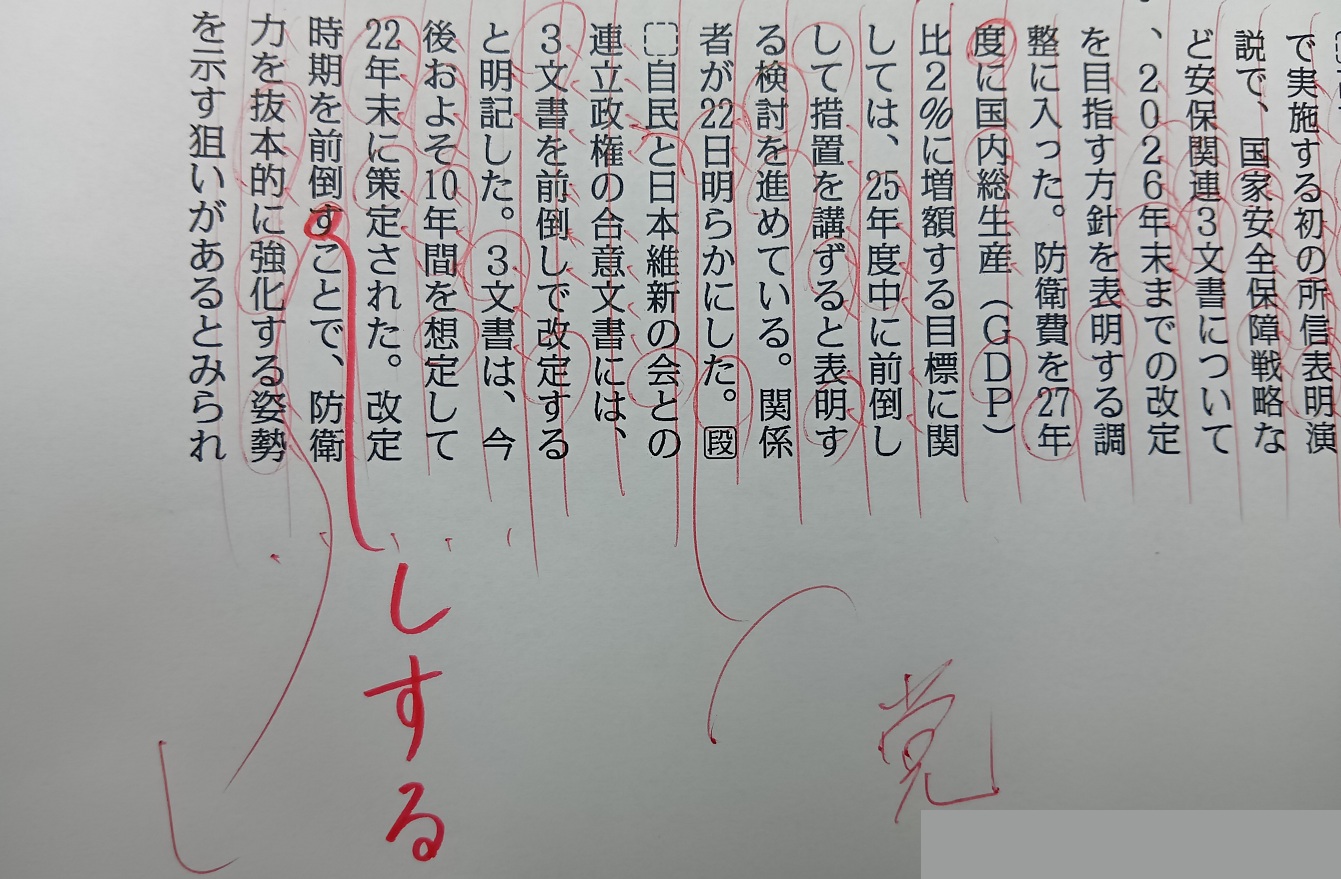 で実施する初の所信表明演
説で、国家安全保障戦略な
ど安保関連3文書について
、2026年末までの改定
を目指す方針を表明する調
整に入った。防衛費を27年
度に国内総生産（GDP）
比2%に増額する目標に関
しては、25年度中に前倒し
して措置を講ずると表明す
る検討を進めている。関係
者が22日明らかにした。段
自民と日本維新の会との
連立政権の合意文書には、
3文書を前倒しで改定する
と明記した。3文書は、今
後およそ10年間を想定して
22年末に策定された。改定
時期を前倒すことで、防衛
力を抜本的に強化する姿勢
を示す狙いがあるとみられ
党
しする